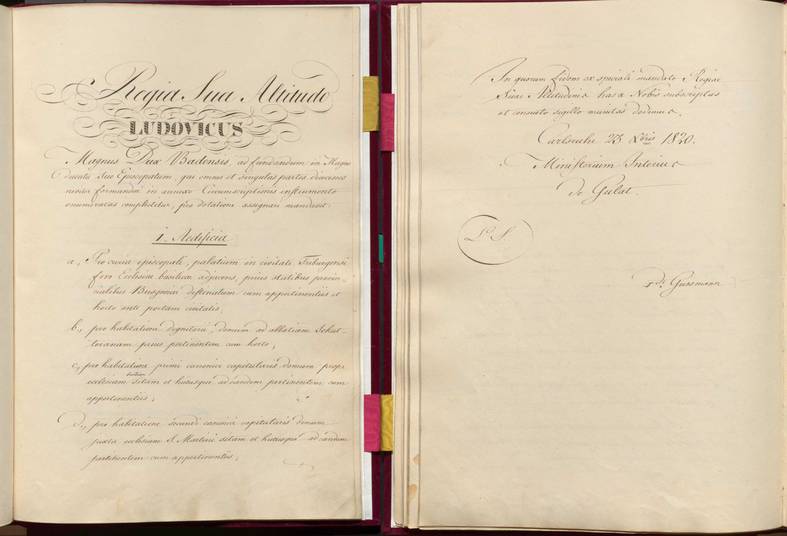 Regia Sua Altitudo
LUDOVICUS
Magnus Dux Badensis, ad fundandum in Magno
Ducatu Suo Episcopatum, qui omnes et singulas partes dioeceseos
noviter formandae in annexo Circumscriptionis instrumento
enumeratas complectitur, pro dotatione assignari mandavit.
1. Aedificia
a., Pro curia episcopali, palatium in civitate Friburgensi
foro Ecclesiae basilicae adjacens, prius statibus provin-
cialibus Brisgoviae destinatum cum appertinentiis et
horto ante portam civitatis,
b., pro habitatione dignitarii, domum ad abbatiam Schut-
teranam prius pertinentem cum horto,
c., pro habitatione primi canonici capitularis domum prope
ecclesiam sitam et hucusque ad eandem pertinentem cum
appertinentiis,
d., pro habitatione secundi canonici capitularis domum
juxta ecclesiam S. Martini sitam et hucusque ad eandem
pertinentem cum appertinentiis,
In quorum fidem ex speciali mandato Regiae
Suae Altitudinis has a Nobis subscriptas
et consueto sigillo munitas dedimus.
Carlsruhe 23 Xbris 1820.
Ministerium Interius
L. S.